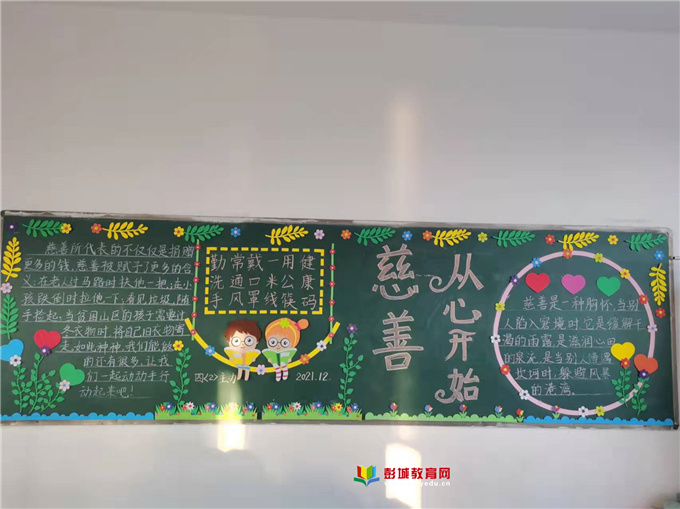 慈善所代表的不仅仅是捐赠
更多的钱,慈善被赋予了更多的含
义,在老人过马路时扶他一把;在小
孩跌倒时拉他一下;看见垃圾,随
手捡起;当贫困山区的孩子需要过
冬衣物时,将自己旧衣物寄
去如此种种,我们能做
的还有很多,让我
们一起动动手行
动起来吧!
勤常戴一用健
洗通口米公康
手风罩线筷码
四(2)主办
2021.12.
慈善
从心开始
慈善是一种胸怀,当别
人陷入窘境时,它是缓解干
渴的雨露是滋润心田
的泉水,是当别人情满
坎坷时,躲避风暴
的港湾。
彭城教育网